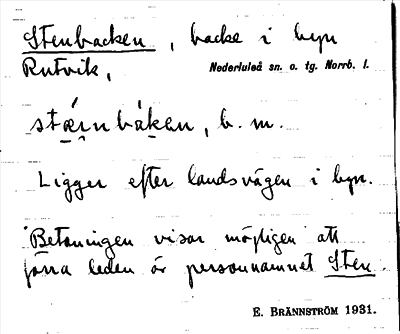 Stenbacken, backe i byn
Rutvik, Nederluleå sn. o. tg. Norrb. l.
stæ̀rnbákan, b. m.
Ligger efter landsvägen i byn.
Betoningen visar möjligen att
förra leden är personnamnet Sten.
E. BRÄNNSTRÖM 1931.